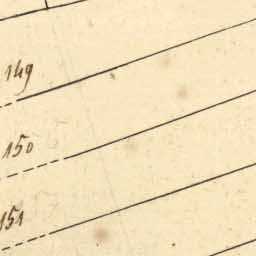 149
150
151